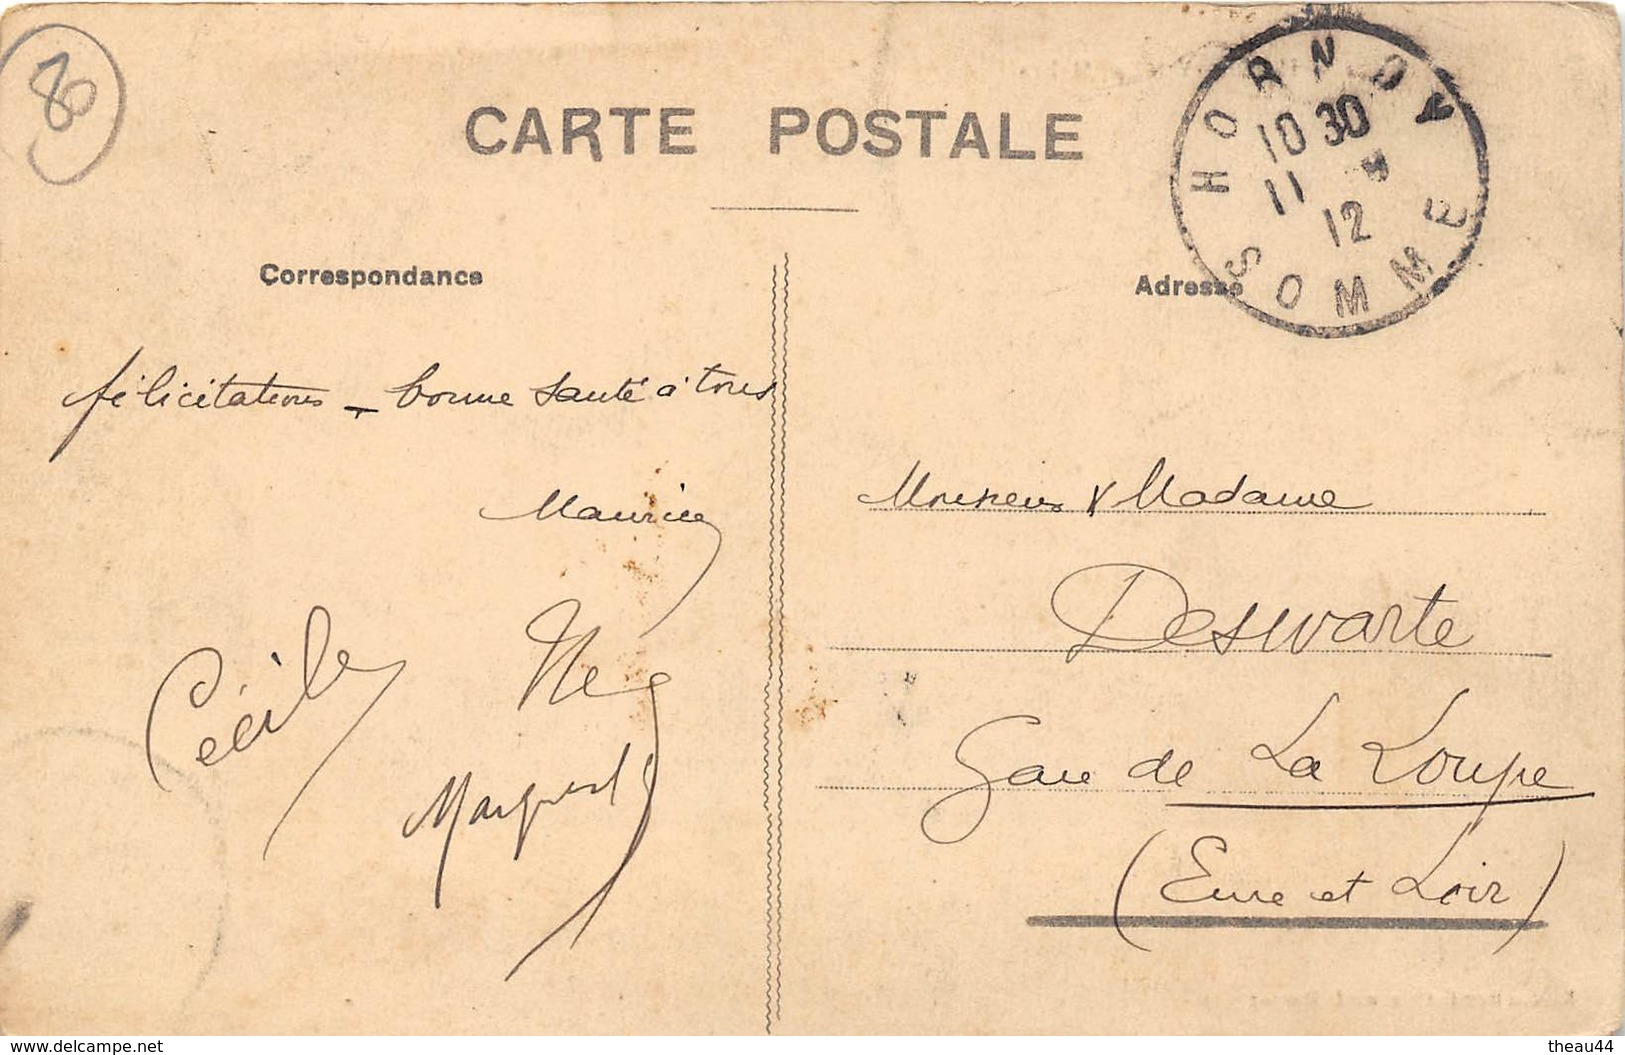 80
CARTE POSTALE
HORNOY
10 30
11
12
SOMME
Correspondance
Adresse
félicitations - bonne santé à tous
Maurice
Cécile
Monsieur & Madame
Deswarte
Gare de La Loupe
(Eure et Loir)
www.delcampe.net
theau44